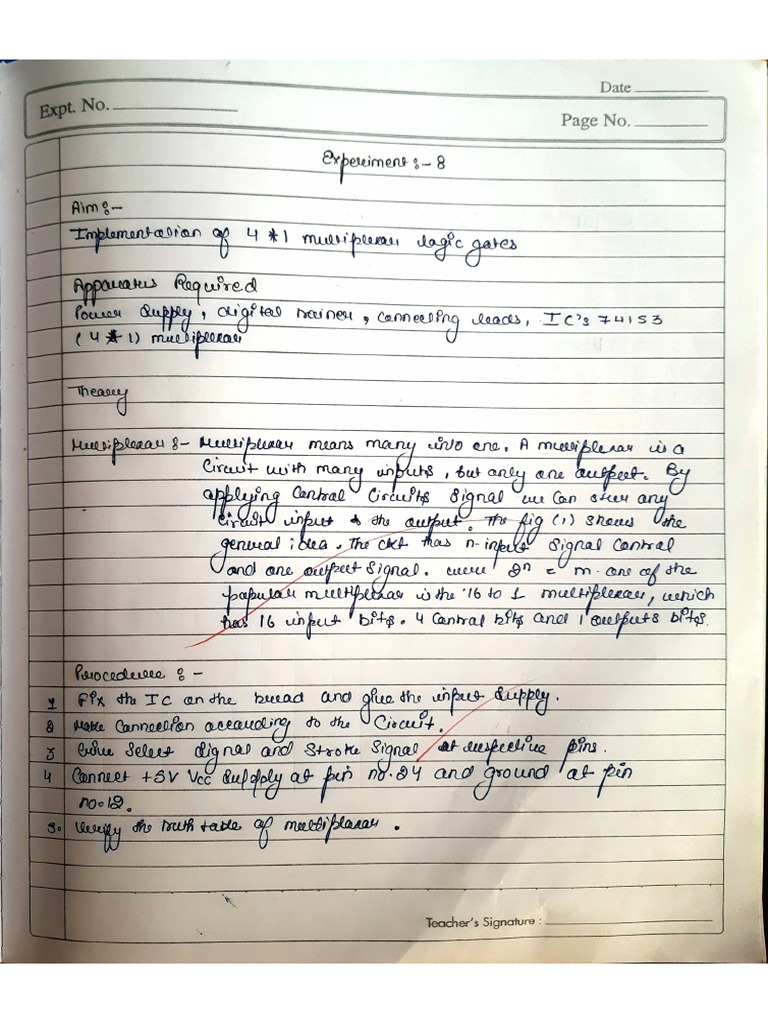 Date
Expt. No.
Page No.
Experiment :- 8
Aim :-
Implementation of 4 * 1 multiplexar logic gates
Apparatus Required
Power Supply, digital trainer, connecting leads, IC's 74153
(4 * 1) multiplexar
Theory
Multiplexar :- Multiplexar means many into one. A multiplexar is a
Circuit with many inputs, but only one output. By
applying Control Circuits Signal we can steer any
circuit input to the output. The fig (1) shows the
general idea. The ckt has n-input Signal Control
and one output Signal. were 2n = m. one of the
popular multiplexar is the '16 to 1 multiplexar, which
has 16 input bits. 4 Control bits and 1 outputs bits.
Procedure :-
1 Fix the IC on the bread and give the input Supply.
2 Make Connection according to the Circuit.
3 Give Select Signal and Stroke Signal at respective pins.
4 Connect +5V Vcc Supply at pin no. 24 and ground at pin
no. 12.
5. Verify the truth table of multiplexar.
Teacher's Signature :